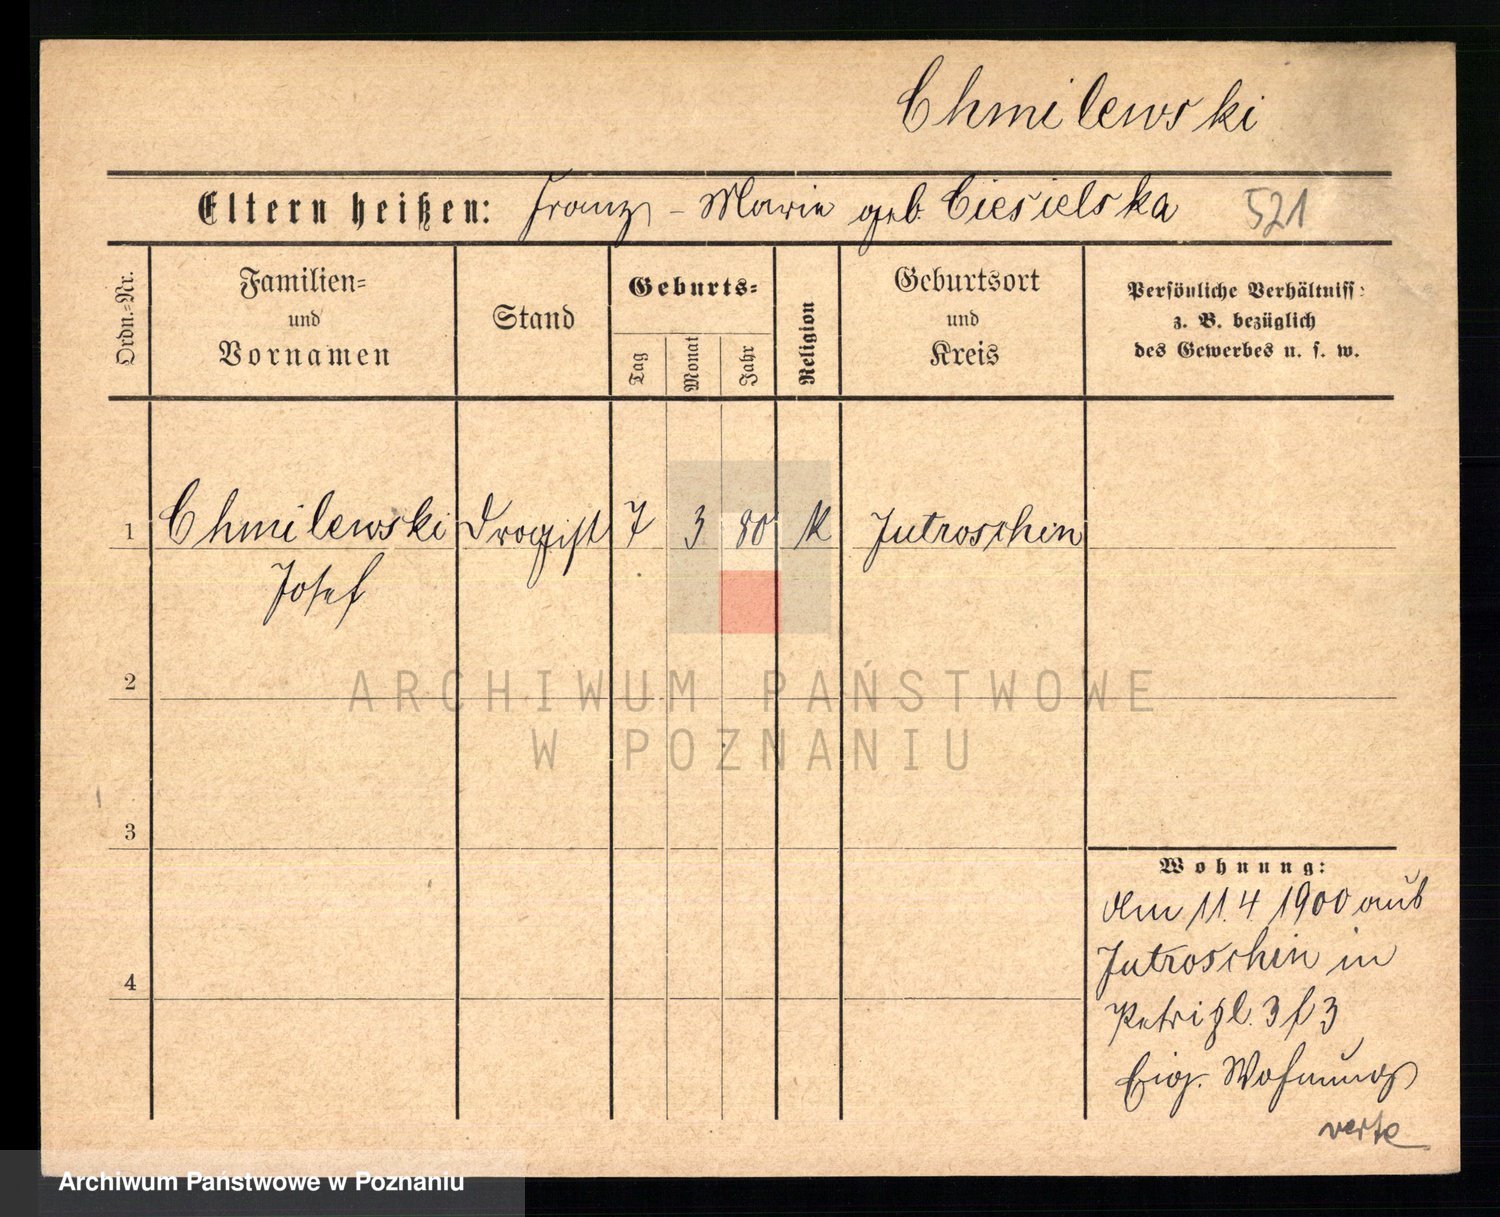 Chmilewski
Eltern heißen: Franz - Marie geb. Ciesielska 521
Ordn.-Nr.
Familien-
und
Vornamen
Stand
Geburts-
Tag
Monat
Jahr
Religion
Geburtsort
und
Kreis
Persönliche Verhältniss
z. B. bezüglich
des Gewerbes u. s. w.
1 Chmilewski Drogist 7 3 80 K Jutroschin
Josef
2
3
4
Wohnung:
Am 11.4 1900 aus
Jutroschin in
Petripl. 3 f 3
Eig. Wohnung
verte
ARCHIWUM PAŃSTWOWE
W POZNANIU
Archiwum Państwowe w Poznaniu